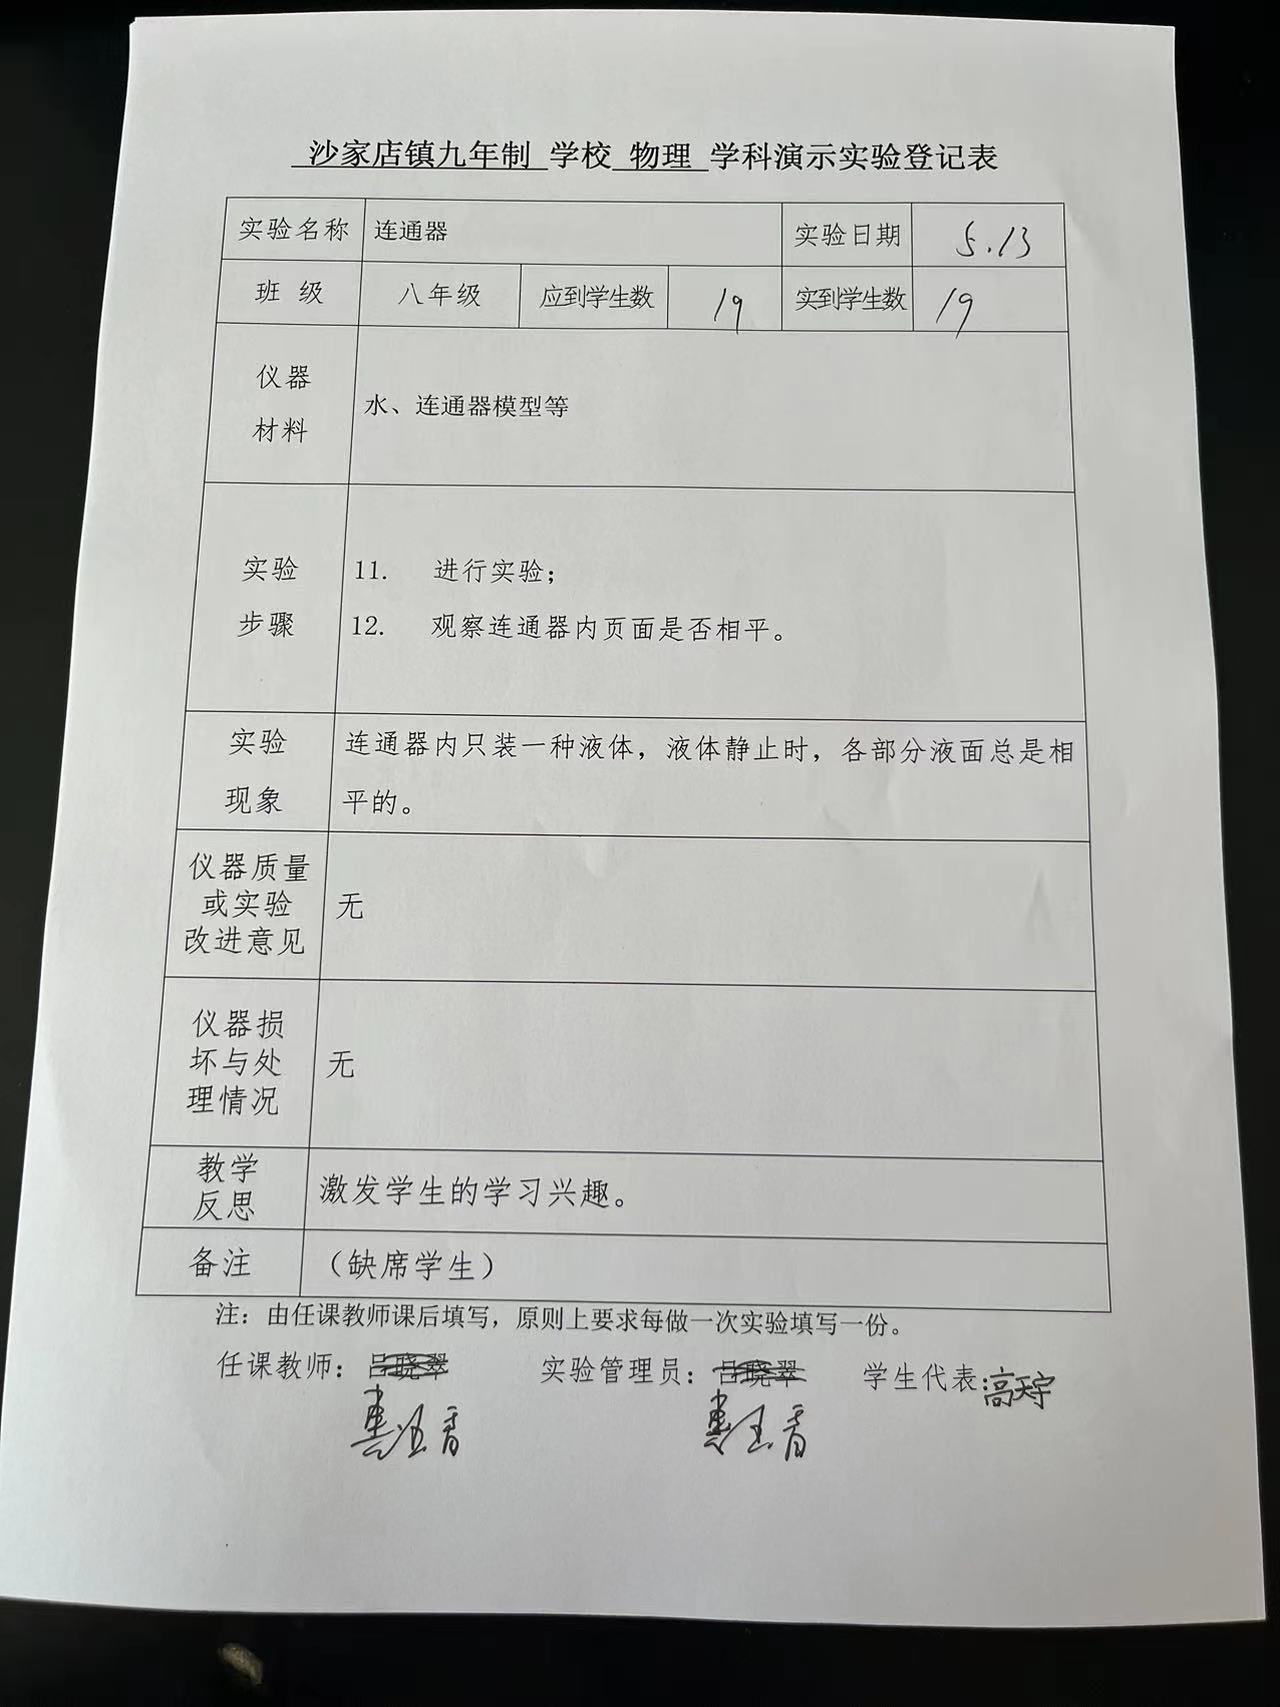 沙家店镇九年制 学校 物理 学科演示实验登记表
实验名称 连通器 实验日期 5.13
班 级 八年级 应到学生数 19 实到学生数 19
仪器
材料
水、连通器模型等
实验
步骤
11. 进行实验；
12. 观察连通器内页面是否相平。
实验
现象
连通器内只装一种液体，液体静止时，各部分液面总是相
平的。
仪器质量
或实验
改进意见
无
仪器损
坏与处
理情况
无
教学
反思
激发学生的学习兴趣。
备注 （缺席学生）
注：由任课教师课后填写，原则上要求每做一次实验填写一份。
任课教师：吕晓翠 实验管理员：吕晓翠 学生代表：高天宇